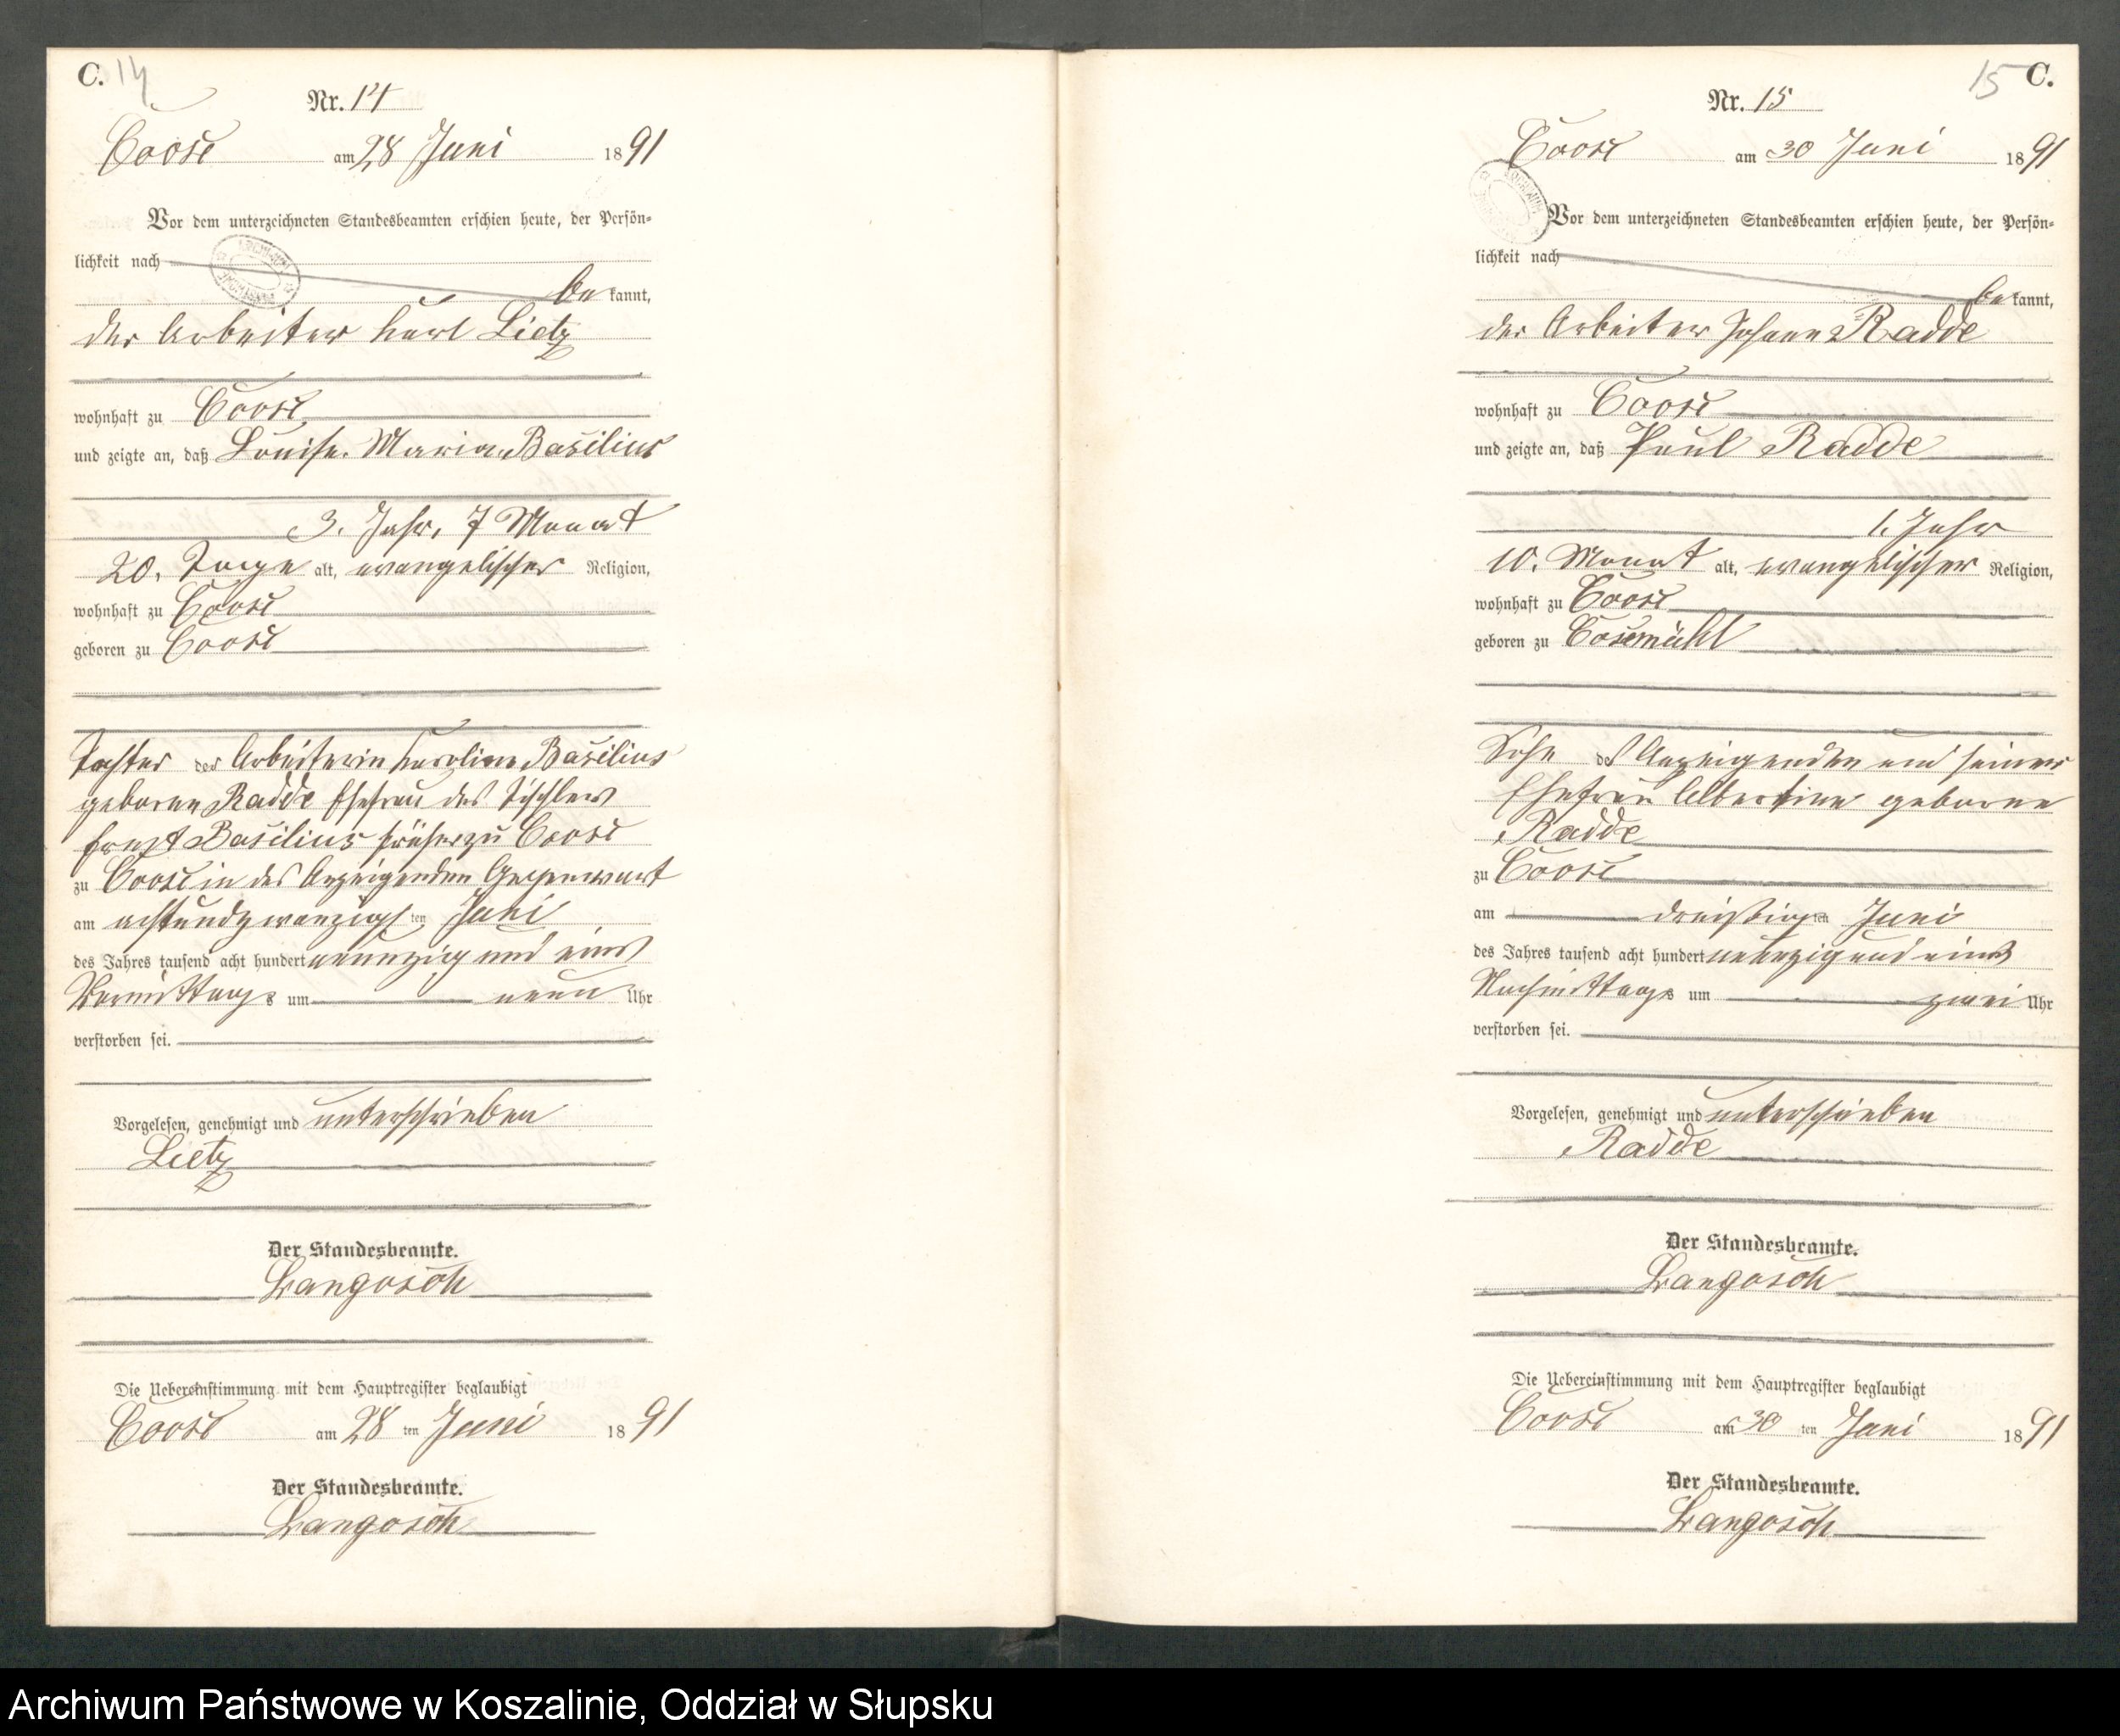 C. 14
Nr. 14
Coose am 28 Juni 1891
Vor dem unterzeichneten Standesbeamten erschien heute, der Persön-
lichkeit nach
be kannt,
der Arbeiter Karl Lietz
wohnhaft zu Coose
und zeigte an, daß Louise Maria Basilius
3. Jahr, 7 Monat
20. Tage alt, evangelischer Religion,
wohnhaft zu Coose
geboren zu Coose
Tochter der Arbeiterin Karoline Basilius
geborene Radde Ehefrau des Tischlers
Ernst Basilius früher zu Coose
zu Coose in des Anzeigenden Gegenwart
am achtundzwanzigsten Juni
des Jahres tausend acht hundert neunzig und eins
Vormittags um neun Uhr
verstorben sei.
Vorgelesen, genehmigt und unterschrieben
Lietz
Der Standesbeamte.
Langosch
Die Uebereinstimmung mit dem Hauptregister beglaubigt
Coose am 28 ten Juni 1891
Der Standesbeamte.
Langosch
15 C.
Nr. 15
Coose am 30 Juni 1891
Vor dem unterzeichneten Standesbeamten erschien heute, der Persön-
lichkeit nach
be kannt,
der Arbeiter Johann Radde
wohnhaft zu Coose
und zeigte an, daß Paul Radde
1. Jahr
10. Monat alt, evangelischer Religion,
wohnhaft zu Coose
geboren zu Cosemühl
Sohn des Anzeigenden und seiner
Ehefrau Albertine geborene
Radde
zu Coose
am dreißigsten Juni
des Jahres tausend acht hundert neunzig und eins
Nachmittags um zwei Uhr
verstorben sei.
Vorgelesen, genehmigt und unterschrieben
Radde
Der Standesbeamte.
Langosch
Die Uebereinstimmung mit dem Hauptregister beglaubigt
Coose am 30 ten Juni 1891
Der Standesbeamte.
Langosch
Archiwum Państwowe w Koszalinie, Oddział w Słupsku